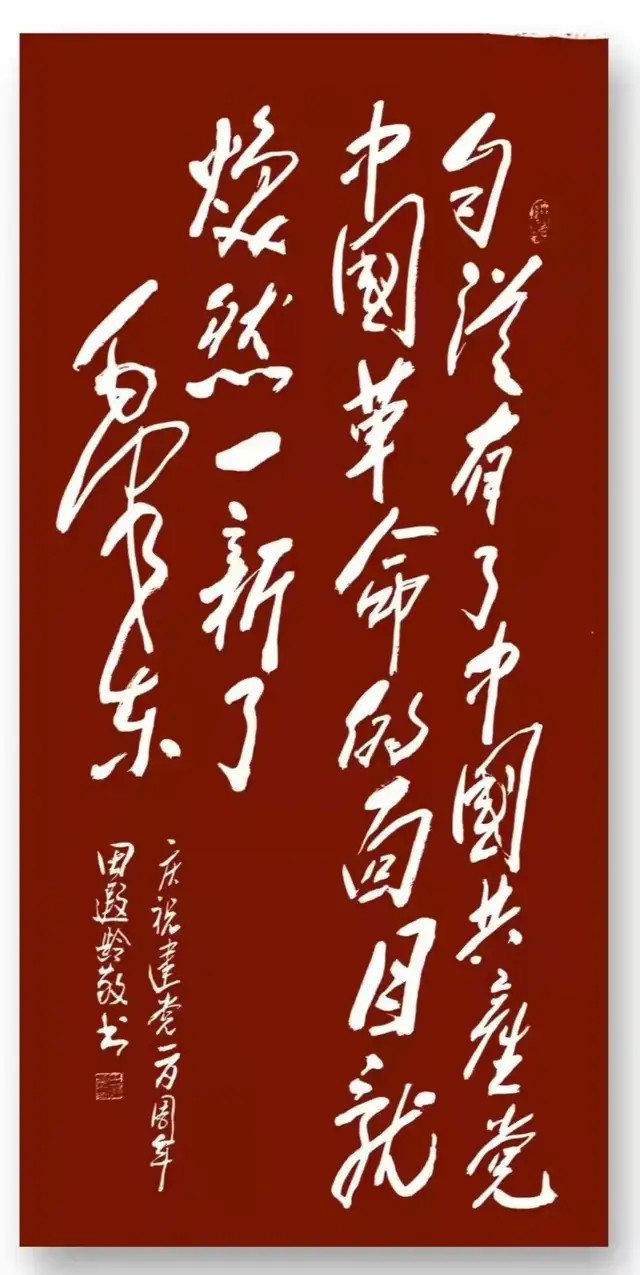 自從有了中國共產党
中國革命的面目就
焕然一新了
毛泽东
庆祝建党一百周年
田遐龄敬书